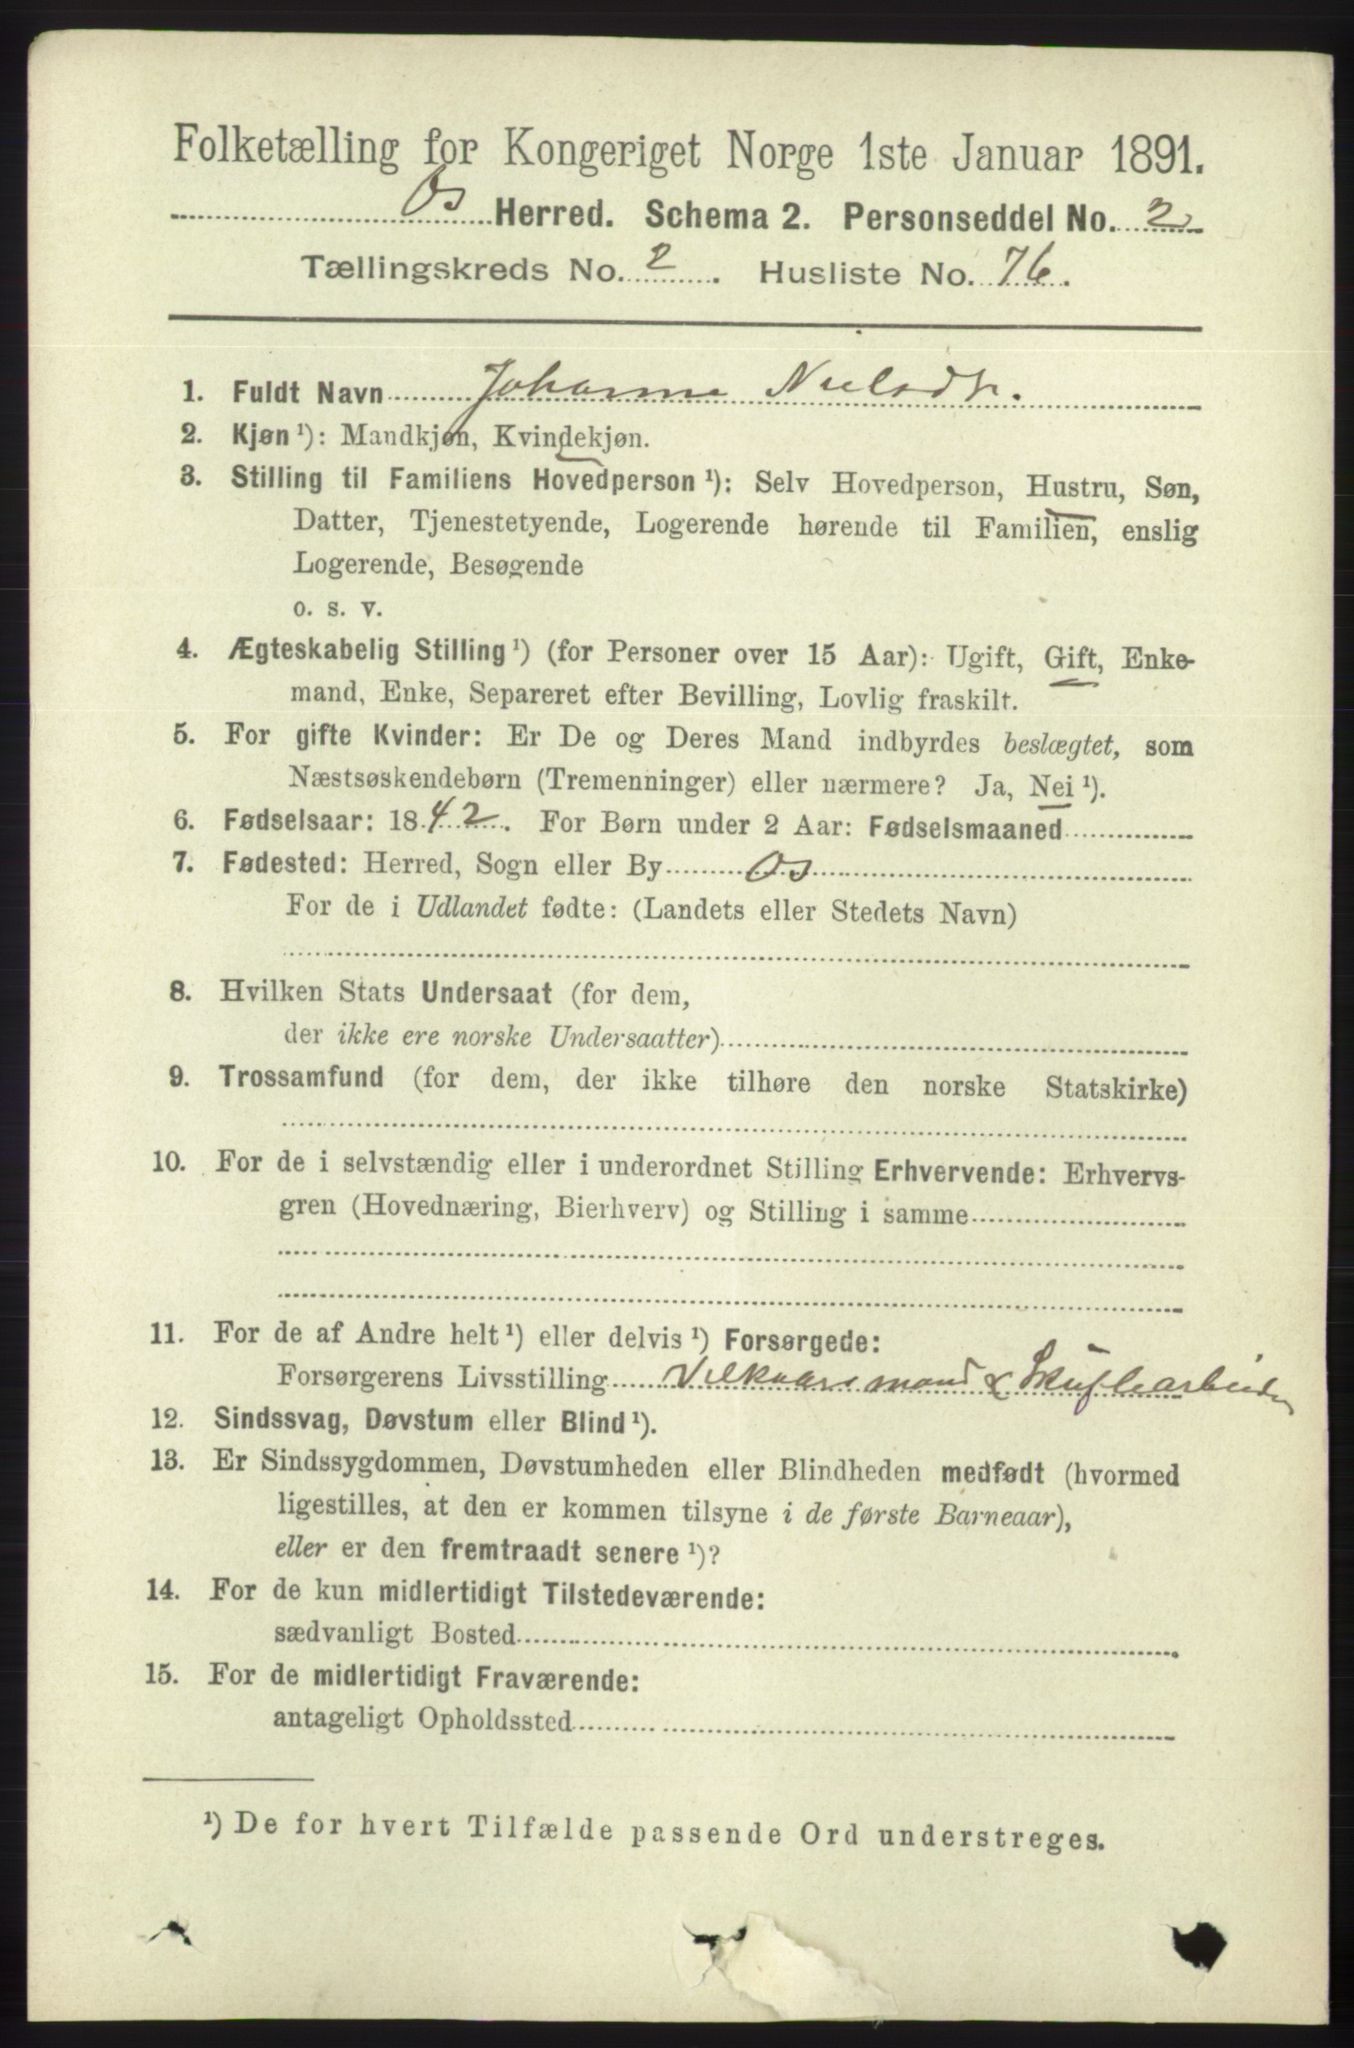 Folketælling for Kongeriget Norge 1ste Januar 1891.
Os Herred. Schema 2. Personseddel No. 2
Tællingskreds No. 2. Husliste No. 76.
1. Fuldt Navn Johanne Nielsdtr.
2. Kjøn ¹): Mandkjøn, Kvindekjøn.
3. Stilling til Familiens Hovedperson ¹): Selv Hovedperson, Hustru, Søn,
Datter, Tjenestetyende, Logerende hørende til Familien, enslig
Logerende, Besøgende
o. s. v.
4. Ægteskabelig Stilling ¹) (for Personer over 15 Aar): Ugift, Gift, Enke-
mand, Enke, Separeret efter Bevilling, Lovlig fraskilt.
5. For gifte Kvinder: Er De og Deres Mand indbyrdes beslægtet, som
Næstsøskendebørn (Tremenninger) eller nærmere? Ja, Nei ¹).
6. Fødselsaar: 1842. For Børn under 2 Aar: Fødselsmaaned
7. Fødested: Herred, Sogn eller By Os
For de i Udlandet fødte: (Landets eller Stedets Navn)
8. Hvilken Stats Undersaat (for dem,
der ikke ere norske Undersaatter)
9. Trossamfund (for dem, der ikke tilhøre den norske Statskirke)
10. For de i selvstændig eller i underordnet Stilling Erhvervende: Erhvervs-
gren (Hovednæring, Bierhverv) og Stilling i samme
11. For de af Andre helt ¹) eller delvis ¹) Forsørgede:
Forsørgerens Livsstilling Vilkaarsmand &
12. Sindssvag, Døvstum eller Blind ¹).
13. Er Sindssygdommen, Døvstumheden eller Blindheden medfødt (hvormed
ligestilles, at den er kommen tilsyne i de første Barneaar),
eller er den fremtraadt senere ¹)?
14. For de kun midlertidigt Tilstedeværende:
sædvanligt Bosted
15. For de midlertidigt Fraværende:
antageligt Opholdssted
¹) De for hvert Tilfælde passende Ord understreges.